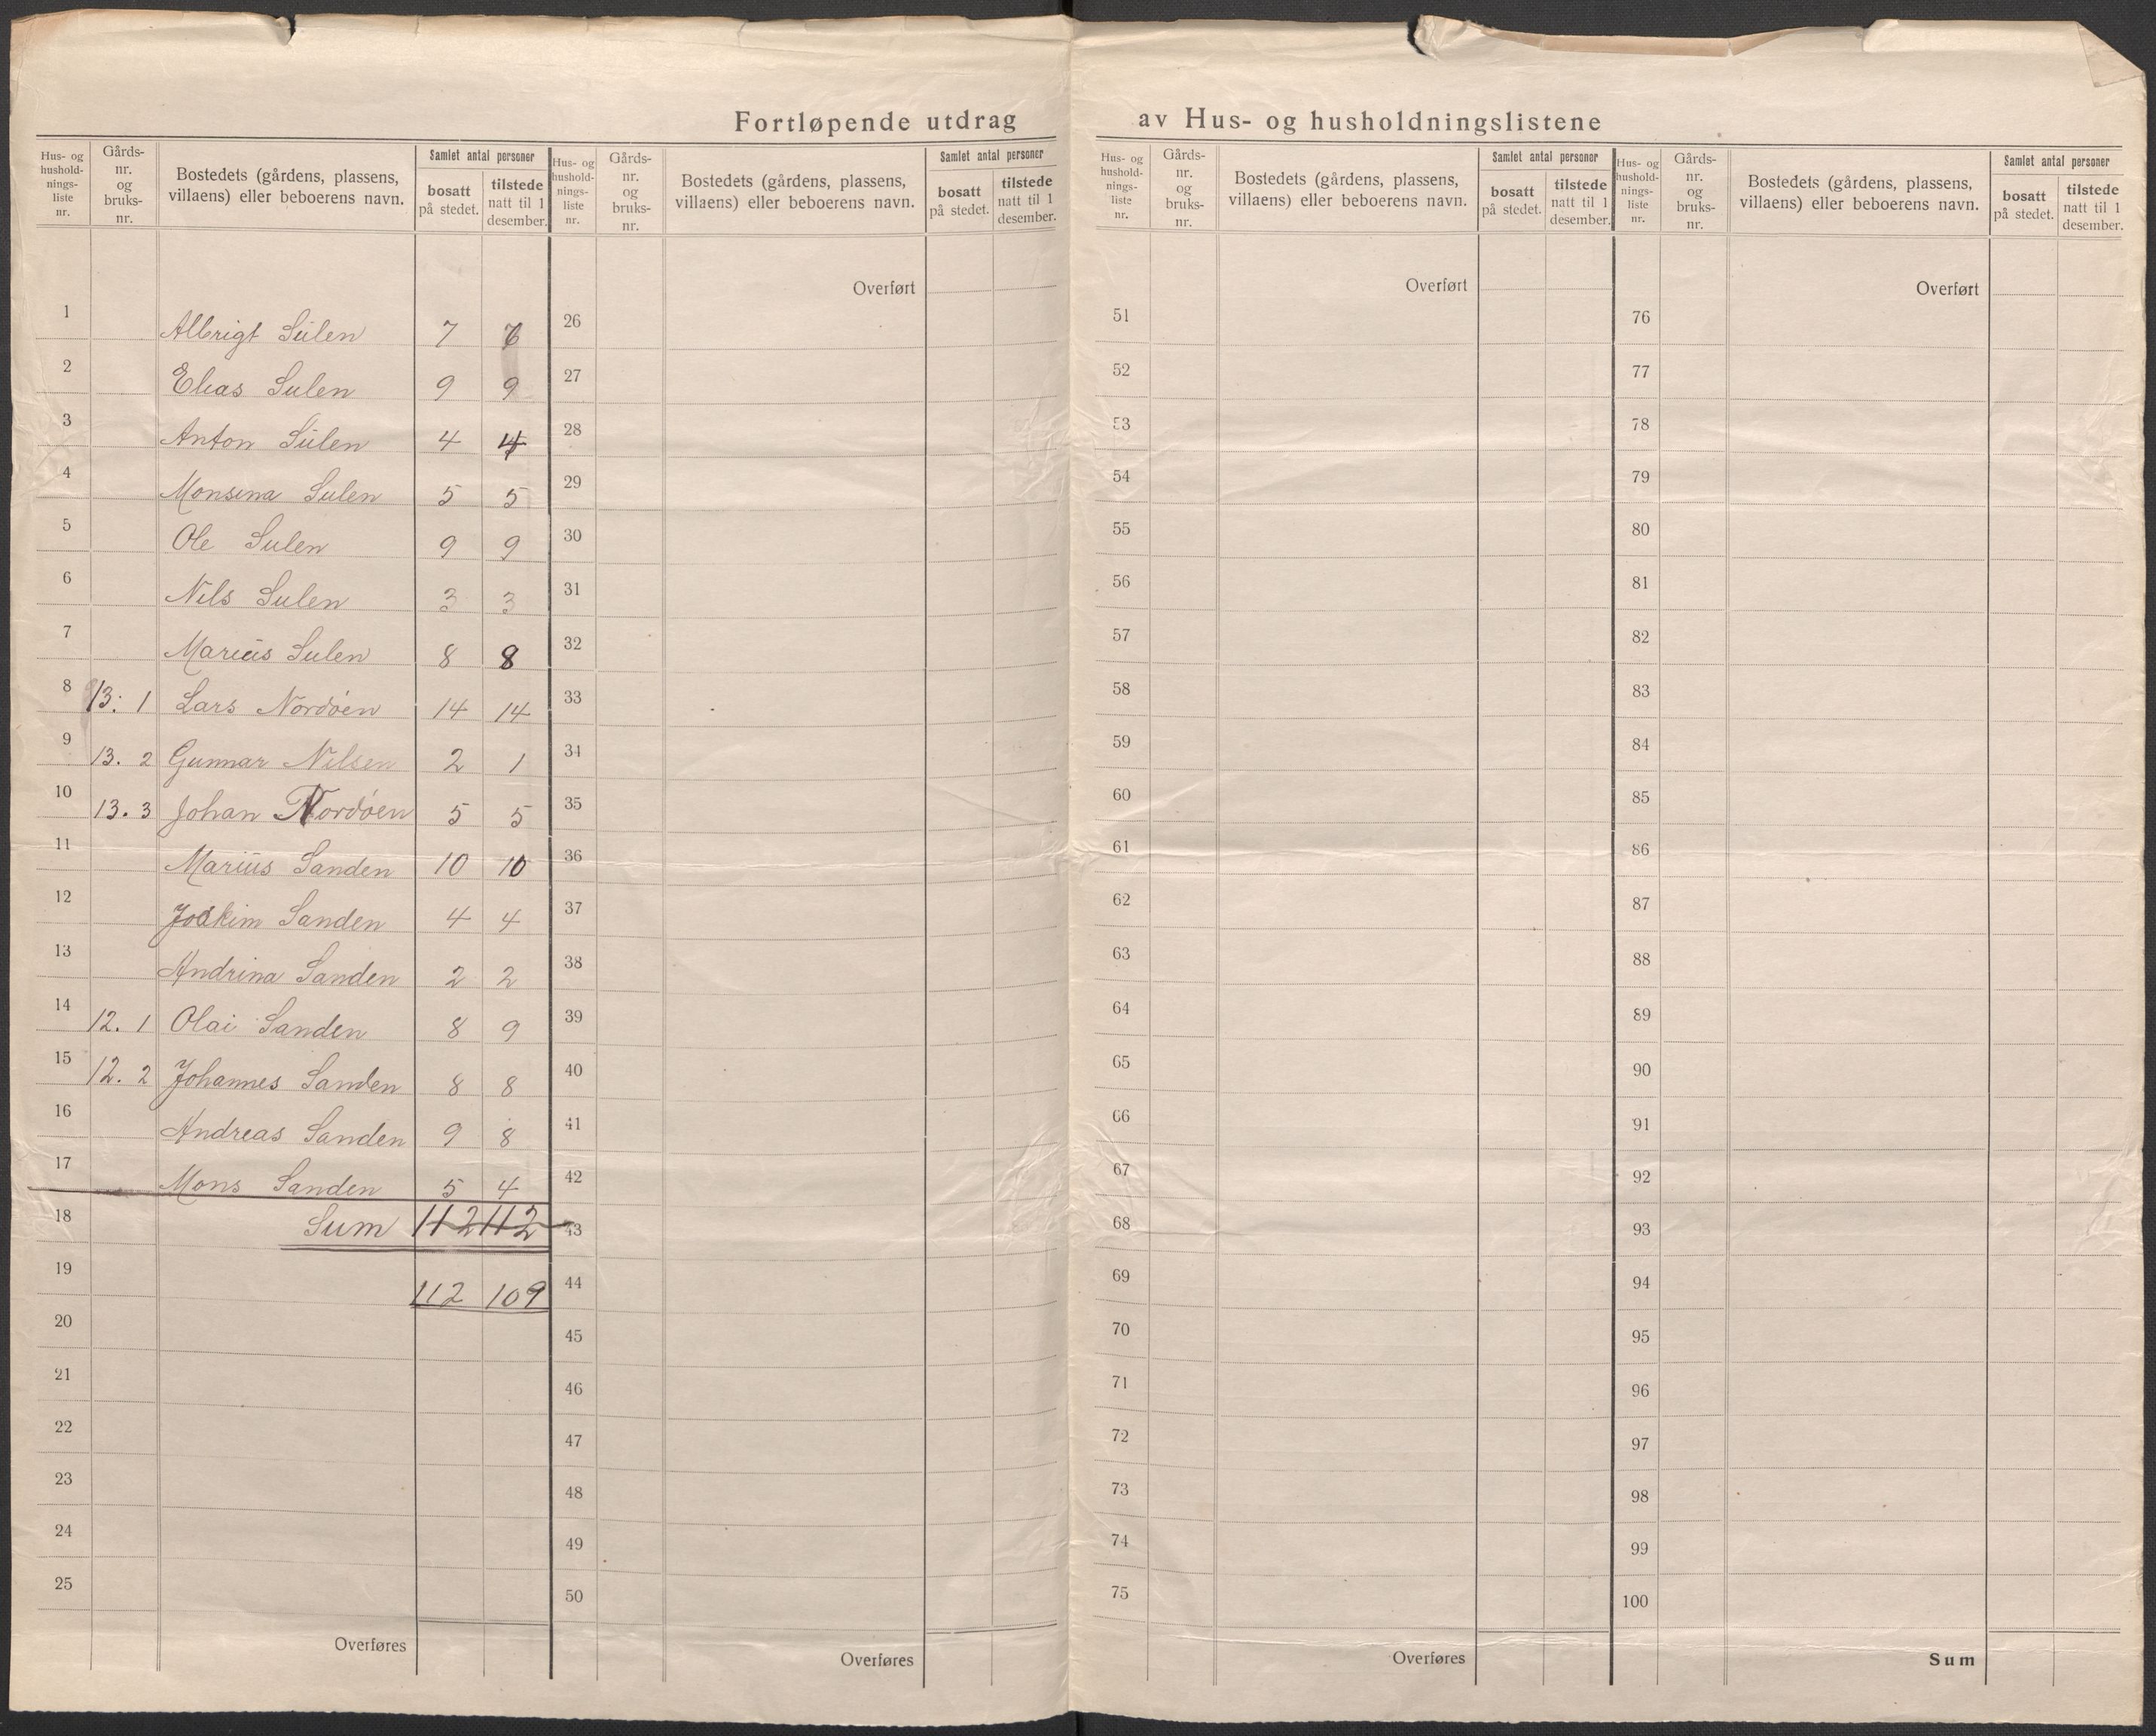 Fortløpende utdrag av Hus- og husholdningslistene
Hus- og hushold-nings-liste nr. | Gårds-nr. og bruks-nr. | Bostedets (gårdens, plassens, villaens) eller beboerens navn. | Samlet antal personer | bosatt på stedet. | tilstede natt til 1 desember.
Hus- og hushold-nings-liste nr. | Gårds-nr. og bruks-nr. | Bostedets (gårdens, plassens, villaens) eller beboerens navn. | Samlet antal personer | bosatt på stedet. | tilstede natt til 1 desember.
Hus- og hushold-nings-liste nr. | Gårds-nr. og bruks-nr. | Bostedets (gårdens, plassens, villaens) eller beboerens navn. | Samlet antal personer | bosatt på stedet. | tilstede natt til 1 desember.
Hus- og hushold-nings-liste nr. | Gårds-nr. og bruks-nr. | Bostedets (gårdens, plassens, villaens) eller beboerens navn. | Samlet antal personer | bosatt på stedet. | tilstede natt til 1 desember.
Overført Overført Overført
1 Albrigt Sulen 7 26 51 76
2 Elias Sulen 9 9 27 52 77
3 Anton Sulen 4 4 28 53 78
4 Monsina Sulen 5 5 29 54 79
5 Ole Sulen 9 9 30 55 80
6 Nils Sulen 3 3 31 56 81
7 Marius Sulen 8 8 32 57 82
8 13. 1 Lars Nordöen 14 14 33 58 83
9 13. 2 Gunnar Nilsen 2 1 34 59 84
10 13. 3 Johan Nordöen 5 5 35 60 85
11 Marius Sanden 10 10 36 61 86
12 Joakim Sanden 4 4 37 62 87
13 Andrina Sanden 2 2 38 63 88
14 12. 1 Olai Sanden 8 9 39 64 89
15 12. 2 Johannes Sanden 8 8 40 65 90
16 Andreas Sanden 9 8 41 66 91
17 Mons Sanden 5 4 42 67 92
18 Sum 112 112 43 68 93
19 112 109 44 69 94
20 45 70 95
21 46 71 96
22 47 72 97
23 48 73 98
24 49 74 99
25 50 75 100
Overføres Overføres Overføres Sum